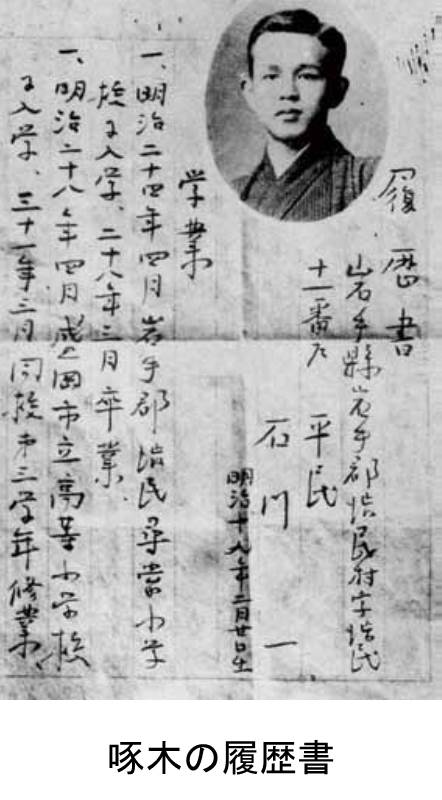 履歴書
岩手縣岩手郡渋民村字渋民
十一番戸
平民
石川 一
明治十九年二月廿日生
学業
一、明治二十四年四月岩手郡渋民尋常小学
校ニ入学、二十八年三月卒業、
一、明治二十八年四月盛岡市立高等小学校
ニ入学、三十一年三月同校第三学年修業
啄木の履歴書